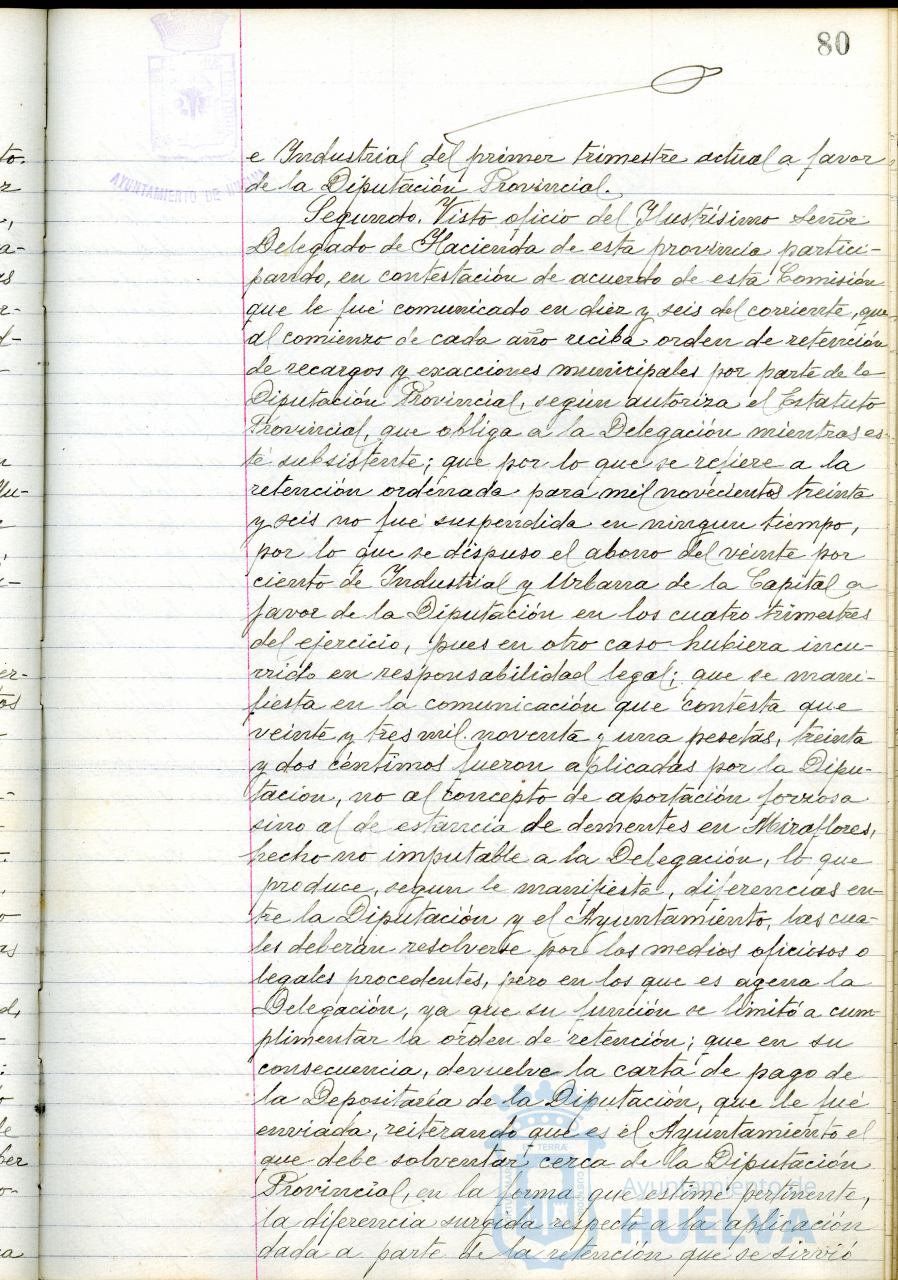 80
AYUNTAMIENTO DE HUELVA
e Industrial del primer trimestre actual a favor
de la Diputación Provincial.
Segundo. Visto oficio del Ilustrísimo Señor
Delegado de Hacienda de esta provincia partici-
pando, en contestación de acuerdo de esta Comisión
que le fué comunicado en diez y seis del corriente, que
al comienzo de cada año reciba orden de retención
de recargos y exacciones municipales por parte de la
Diputación Provincial, según autoriza el Estatuto
Provincial, que obliga a la Delegación mientras es-
té subsistente; que por lo que se refiere a la
retención ordenada para mil novecientos treinta
y seis no fué suspendida en ningun tiempo,
por lo que se dispuso el abono del veinte por
ciento de Industrial y Urbana de la Capital a
favor de la Diputación en los cuatro trimestres
del ejercicio, pues en otro caso hubiera incu-
rrido en responsabilidad legal; que se mani-
fiesta en la comunicación que contesta que
veinte y tres mil noventa y una pesetas, treinta
y dos céntimos fueron aplicadas por la Dipu-
tación, no al concepto de aportación forzosa
sino al de estancia de dementes en Miraflores,
hecho no imputable a la Delegación, lo que
produce, segun le manifiesta, diferencias en-
tre la Diputación y el Ayuntamiento, las cua-
les deberán resolverse por los medios oficiosos o
legales procedentes, pero en los que es agena la
Delegación, ya que su función se limitó a cum-
plimentar la orden de retención; que en su
consecuencia, devuelve la carta de pago de
la Depositaría de la Diputación, que le fué
enviada, reiterando que es el Ayuntamiento el
que debe solventar cerca de la Diputación
Provincial, en la forma que estime pertinente,
la diferencia surgida respecto a la aplicación
dada a parte de la retención que se sirvió
Ayuntamiento de
HUELVA